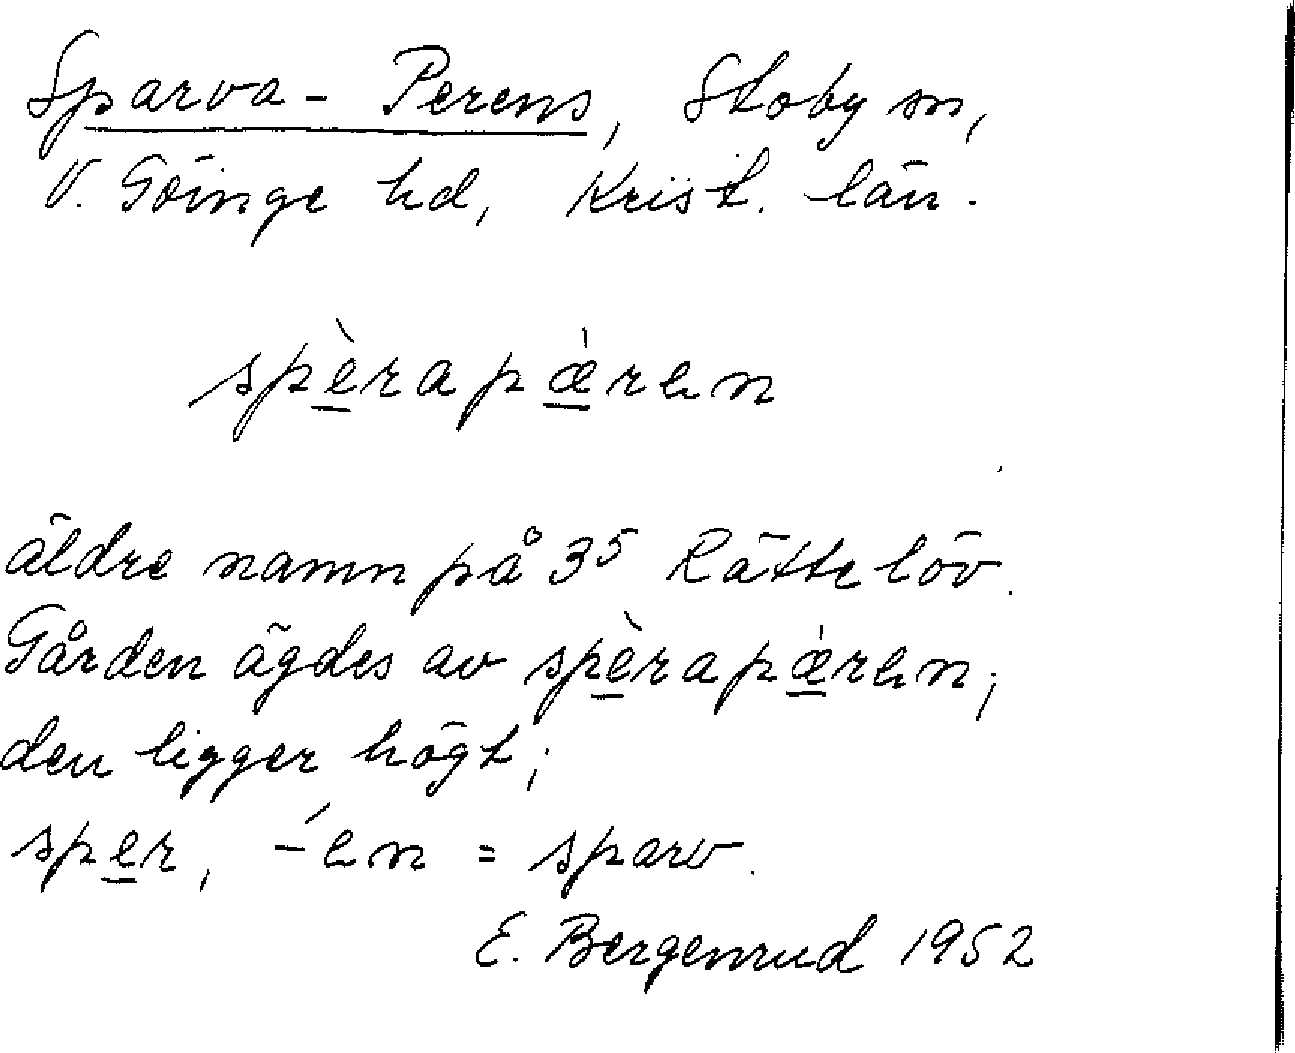 Sparva-Perens, Stoby sn,
V. Göinge hd, Krist. län.
spèrapǽren
äldre namn på 3⁵ Rättelöv.
Gården ägdes av spèrapǽren;
den ligger högt;
sper, -́en = sparv.
E. Bergenrud 1952